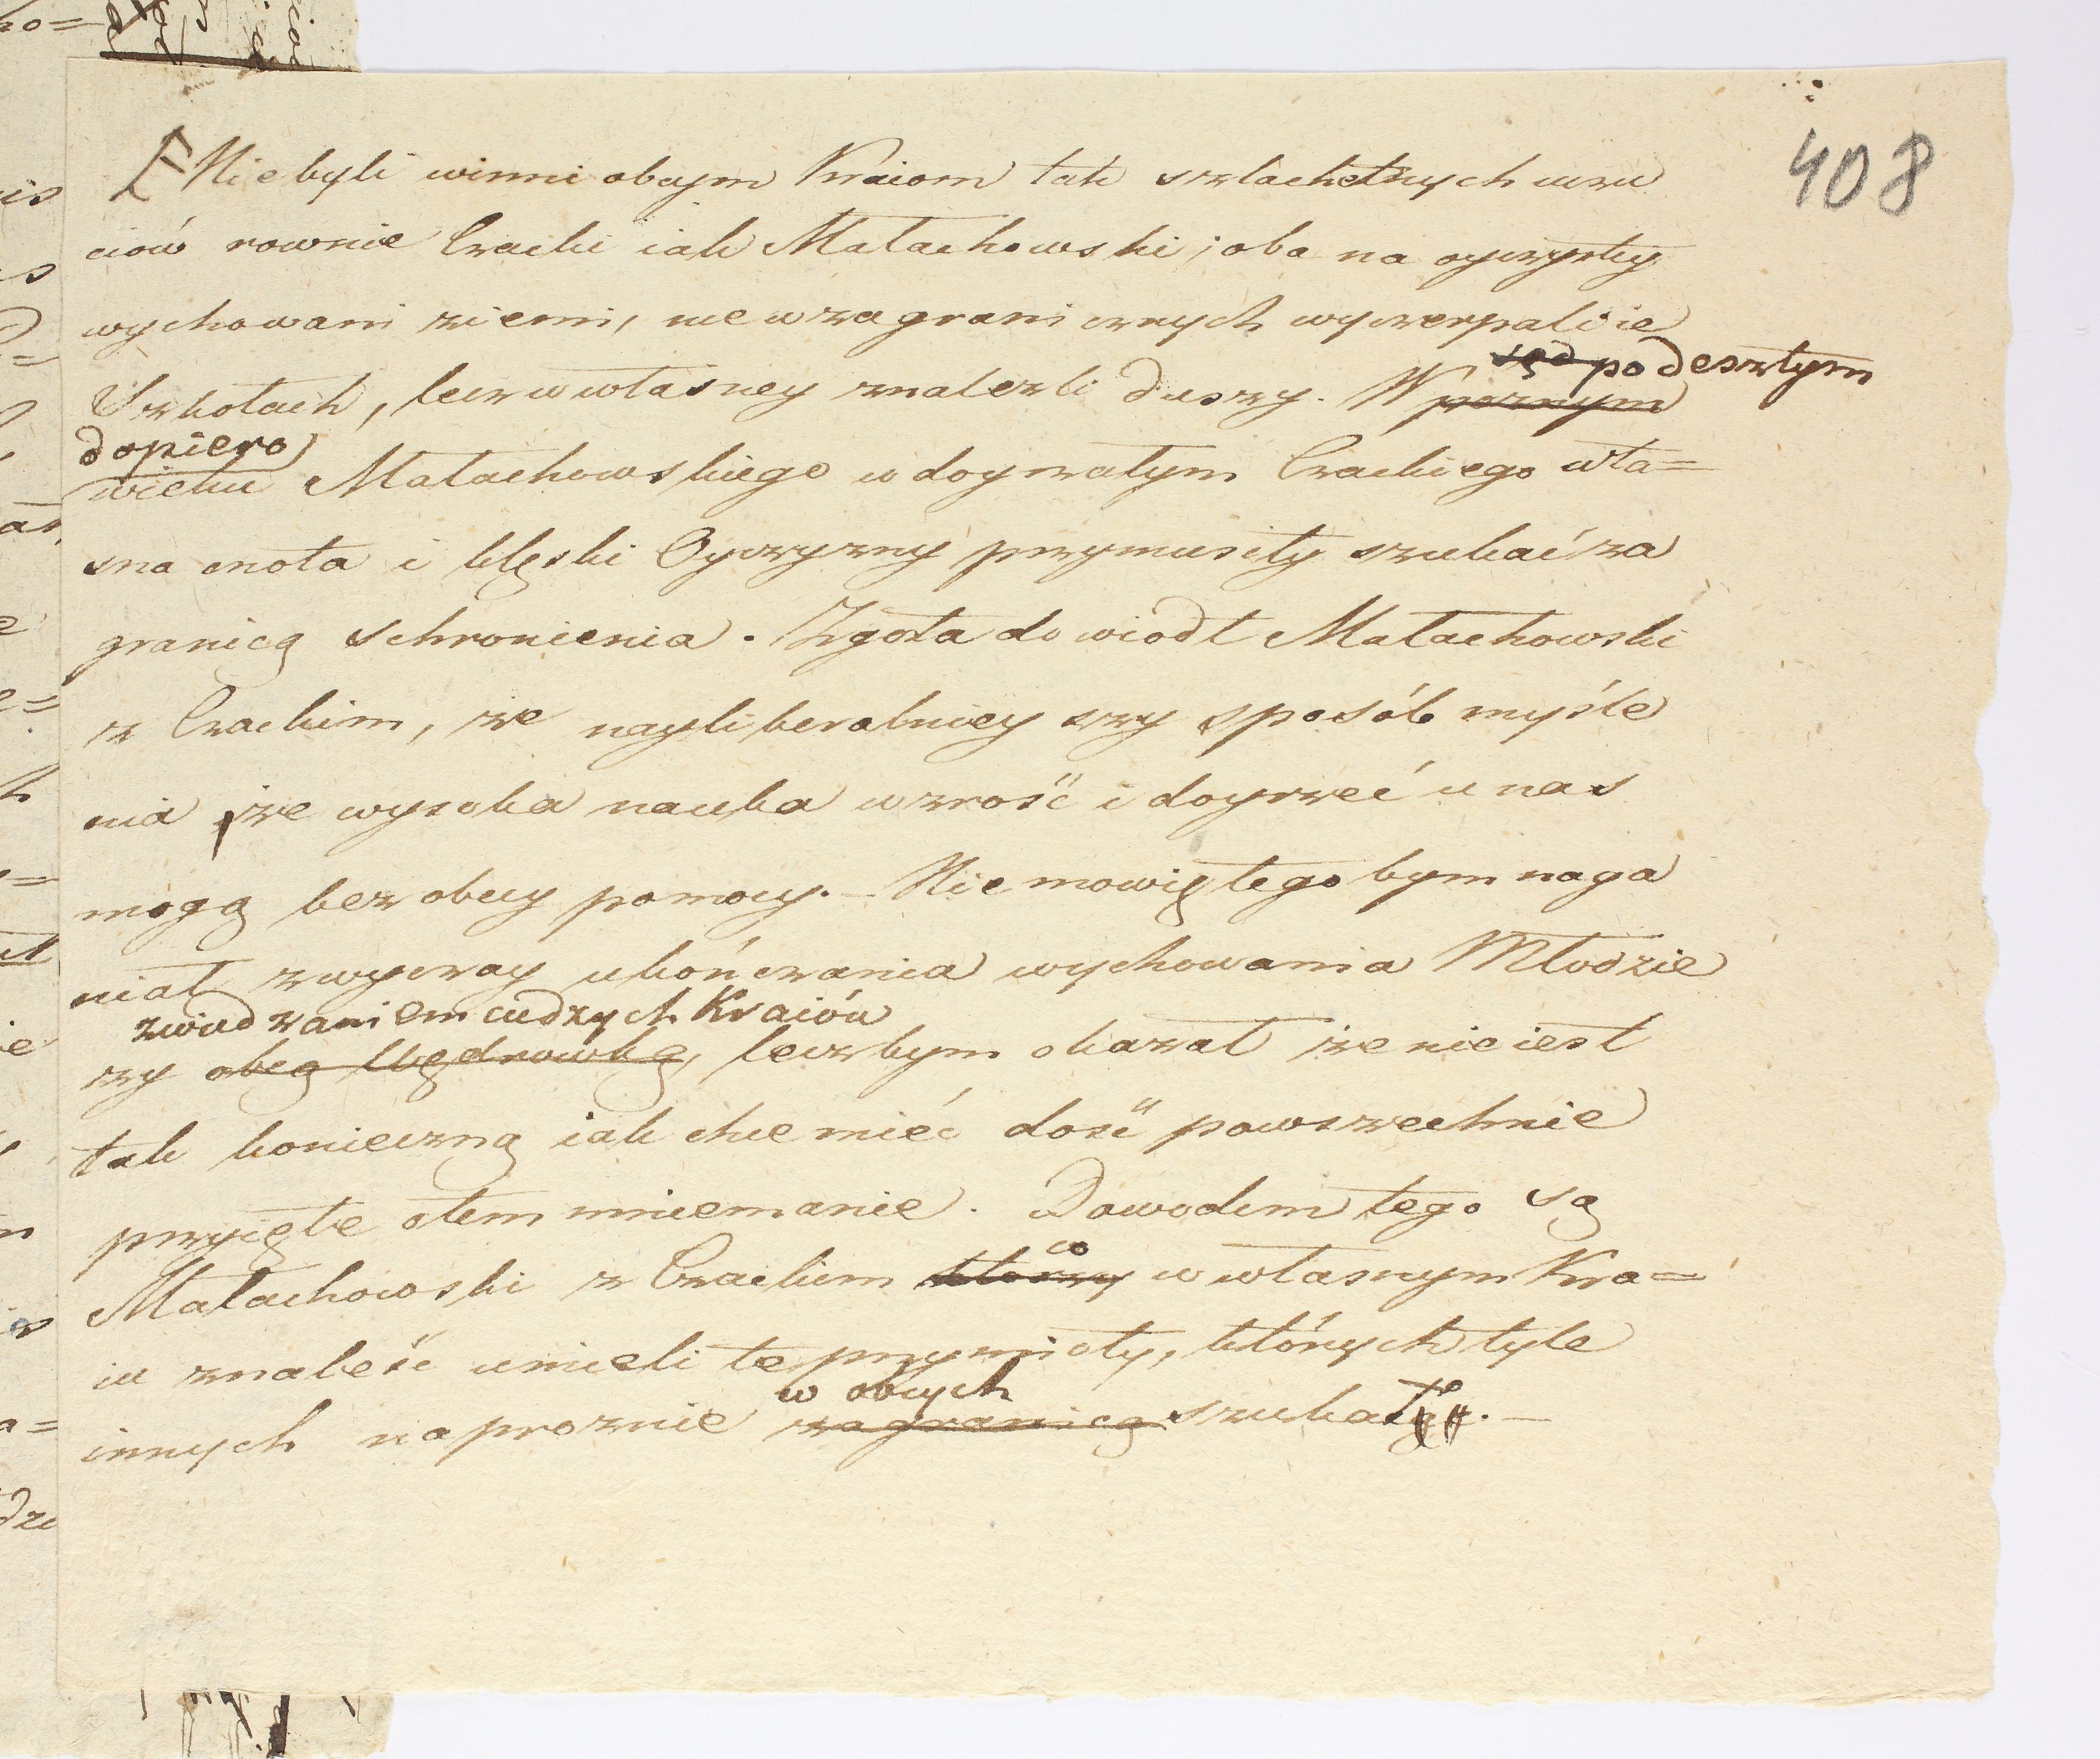 408
Nie byli winni obcym Kraiom tak szlachetnych uczu
ciów rownie Czacki iak Małachowski; oba na oyczystey
wychowani ziemi, nie w zagranicznych wyczerpali ie
sęd podeszłym
Szkołach, lecz w własney znalezli duszy. W poznym
dopiero
wieku Małachowskiego w doyrzałym Czackiego wła=
sna cnota i klęski Oyczyzny przymusiły szukać za
granicą schronienia. Zgoła dowiodł Małachowski
z Czackim, że nayliberalnieyszy sposób myśle
nia, że wysoka nauka wzrość i doyrzeć u nas
mogą bez obcey pomocy. – Nie mowię tego bym naga
niał zwyczay ukończania wychowania Młodzie
zwiedzaniem cudzych Kraiów
zy obcą wędrowką, lecz bym okazał że nie iest
tak konieczną iak chce mieć dość powszechnie
przyięte o tem mniemanie. Dowodem tego są
co
Małachowski z Czackim ktorzy w własnym Kra=
iu znaleść umieli te przymioty, których tyle
w obcych
innych naproznie zagranicą szukało. –